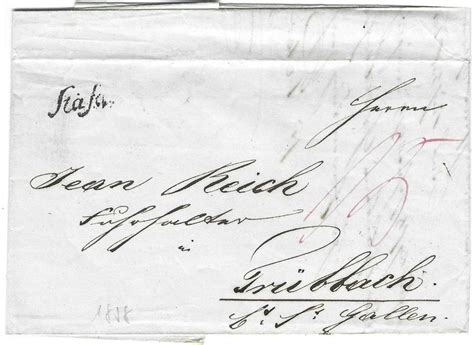 Stäfa
Herrn
Jean Reich
Fuhrhalter
in
Trübbach.
Ct. St. Gallen.
1838